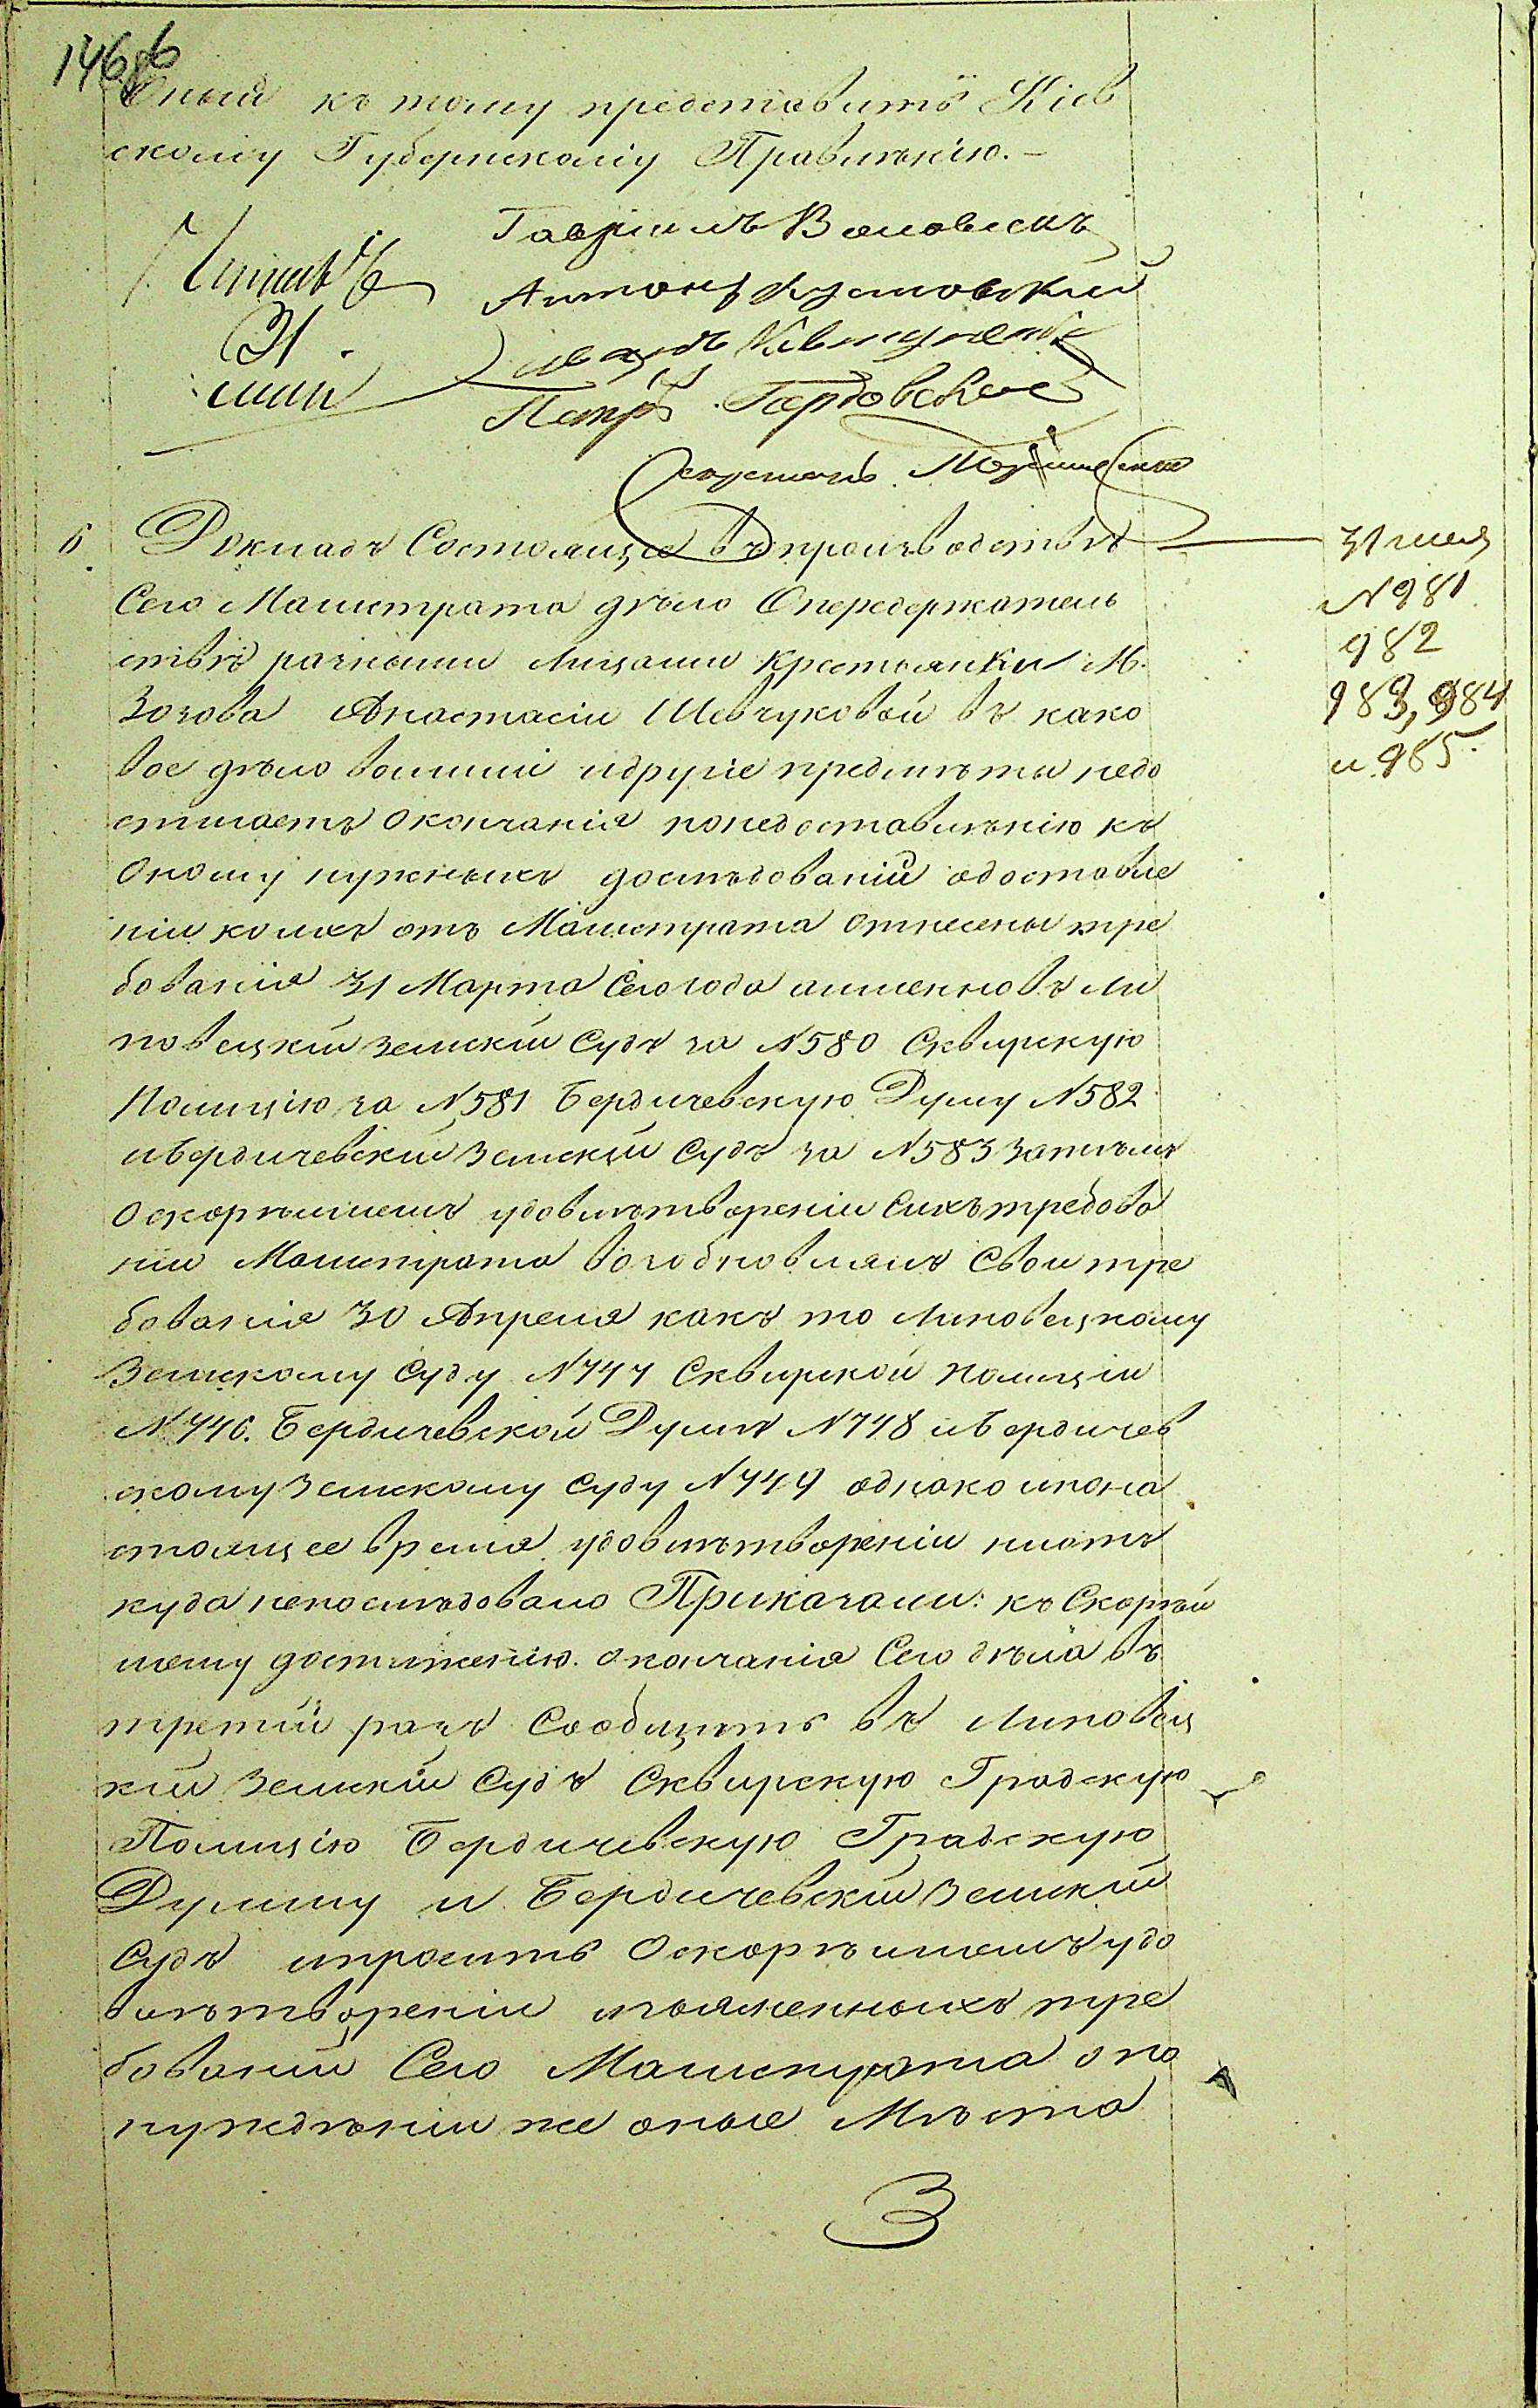 146об
Оный къ тому представить Кіев
скому Губернскому Правленію.-
Гавріилъ
Антонъ
31
маія
Петръ
Секретарь
6. Докладъ Состоящее въ производствѣ
31 мая
Сего Магистрата дѣло Опередержатель
N 981
ствѣ разными Лицами крестьянки М.
982
Зозова Анастасіи Шевчуковой въ како
983, 984
вое дѣло вошли идругіе предмѣты недо
и 985.
стигаетъ окончанія понедоставленію къ
Оному нужныхъ дослѣдованій одоставле
ніи коихъ отъ Магистрата отнесены тре
бованія 31 Марта Сего года аименновъ Ли
повецкій земскій Судъ за N 580 Сквирскую
Полицію за N 581 Бердичевскую Думу N 582
иБердичевскій Земскій Судъ за N 583 затѣмъ
Оскорѣйшемъ удовлетвореніи Сихътребова
ній Магистратъ возобновлялъ Свои тре
бованія 30 Апреля какъ то Липовецкому
Земскому Суду N 747 Сквирской Полиціи
N 746. Бердичевской Думѣ N 748 иБердичев
скому Земскому Суду N 749 однако ипона
стоящее время удовлетвореніи ниотъ
куда непослѣдовало Приказали: къ Скорѣй
шему достиженію окончанія Сего дѣла въ
третій разъ Сообщить въ Липовец
кій Земскій Судъ Сквирскую Градскую
Полицію Бердичевскую Градскую
Думу и Бердичевскій Земскій
Судъ ипросить Оскорѣйшемъ удо
влетвореніи изъясненныхъ тре
бованій Сего Магистрата опо
нужденіи же оные Мѣста
З